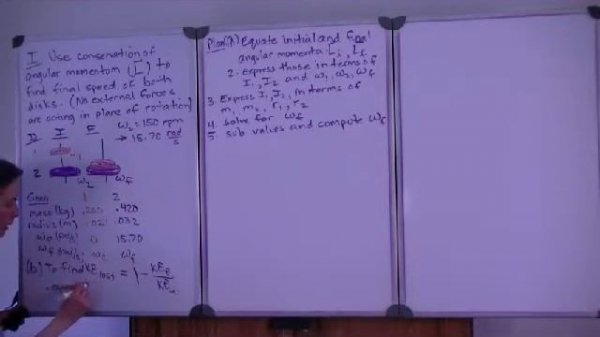 I Use conservation of
angular momentum (L) to
find final speed of both
disks. (No external forces
are acting in plane of rotation)
D I F ω₂ = 150 rpm
1 → 15.70 rad/s
2 ω₂ ωf
Given 1 2
mass (kg) .420
radius (m) .032
0 15.70
ωf ωf
(b) To find KE loss = 1 - KE
Plan(A) 1 Equate initial and final
angular momenta Li, Lf
2. express those in terms of
I₁, I₂ and ω₁, ω₂, ωf
3 Express I₁, I₂, in terms of
m₁ m₂, r₁, r₂
4. Solve for ωf
5 sub values and compute ωf